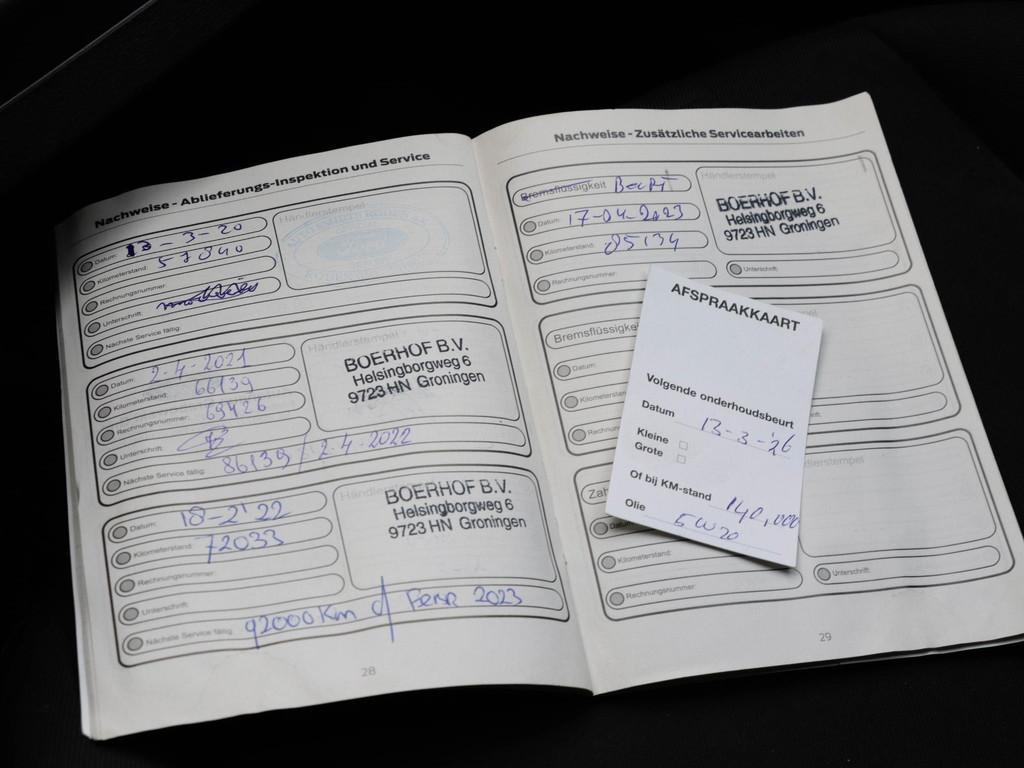 Nachweise - Ablieferungs-Inspektion und Service
Händlerstempel
Datum: 13-3-20
Kilometerstand: 57840
Rechnungsnummer:
Unterschrift:
Nächste Service fällig:
Händlerstempel
BOERHOF B.V.
Helsingborgweg 6
9723 HN Groningen
Datum: 2-4-2021
Kilometerstand: 66139
Rechnungsnummer: 69426
Unterschrift:
Nächste Service fällig: 86139 / 2-4-2022
Händlerstempel
BOERHOF B.V.
Helsingborgweg 6
9723 HN Groningen
Datum: 18-2'22
Kilometerstand: 72033
Rechnungsnummer:
Unterschrift:
Nächste Service fällig: 92000Km of Febr 2023
28
Nachweise - Zusätzliche Servicearbeiten
Bremsflüssigkeit Beurt
Händlerstempel
BOERHOF B.V.
Helsingborgweg 6
9723 HN Groningen
Datum: 17-04-2023
Kilometerstand: 85134
Rechnungsnummer:
Unterschrift:
Bremsflüssigke
Datum:
Kilometers
Rechnun
terschrift:
Zah
dlerstempel
Datu
Kilometerstand:
Rechnungsnummer:
Unterschrift:
29
AFSPRAAKKAART
Volgende onderhoudsbeurt
Datum 13-3-'26
Kleine
Grote
Of bij KM-stand 140,000
Olie 5W20